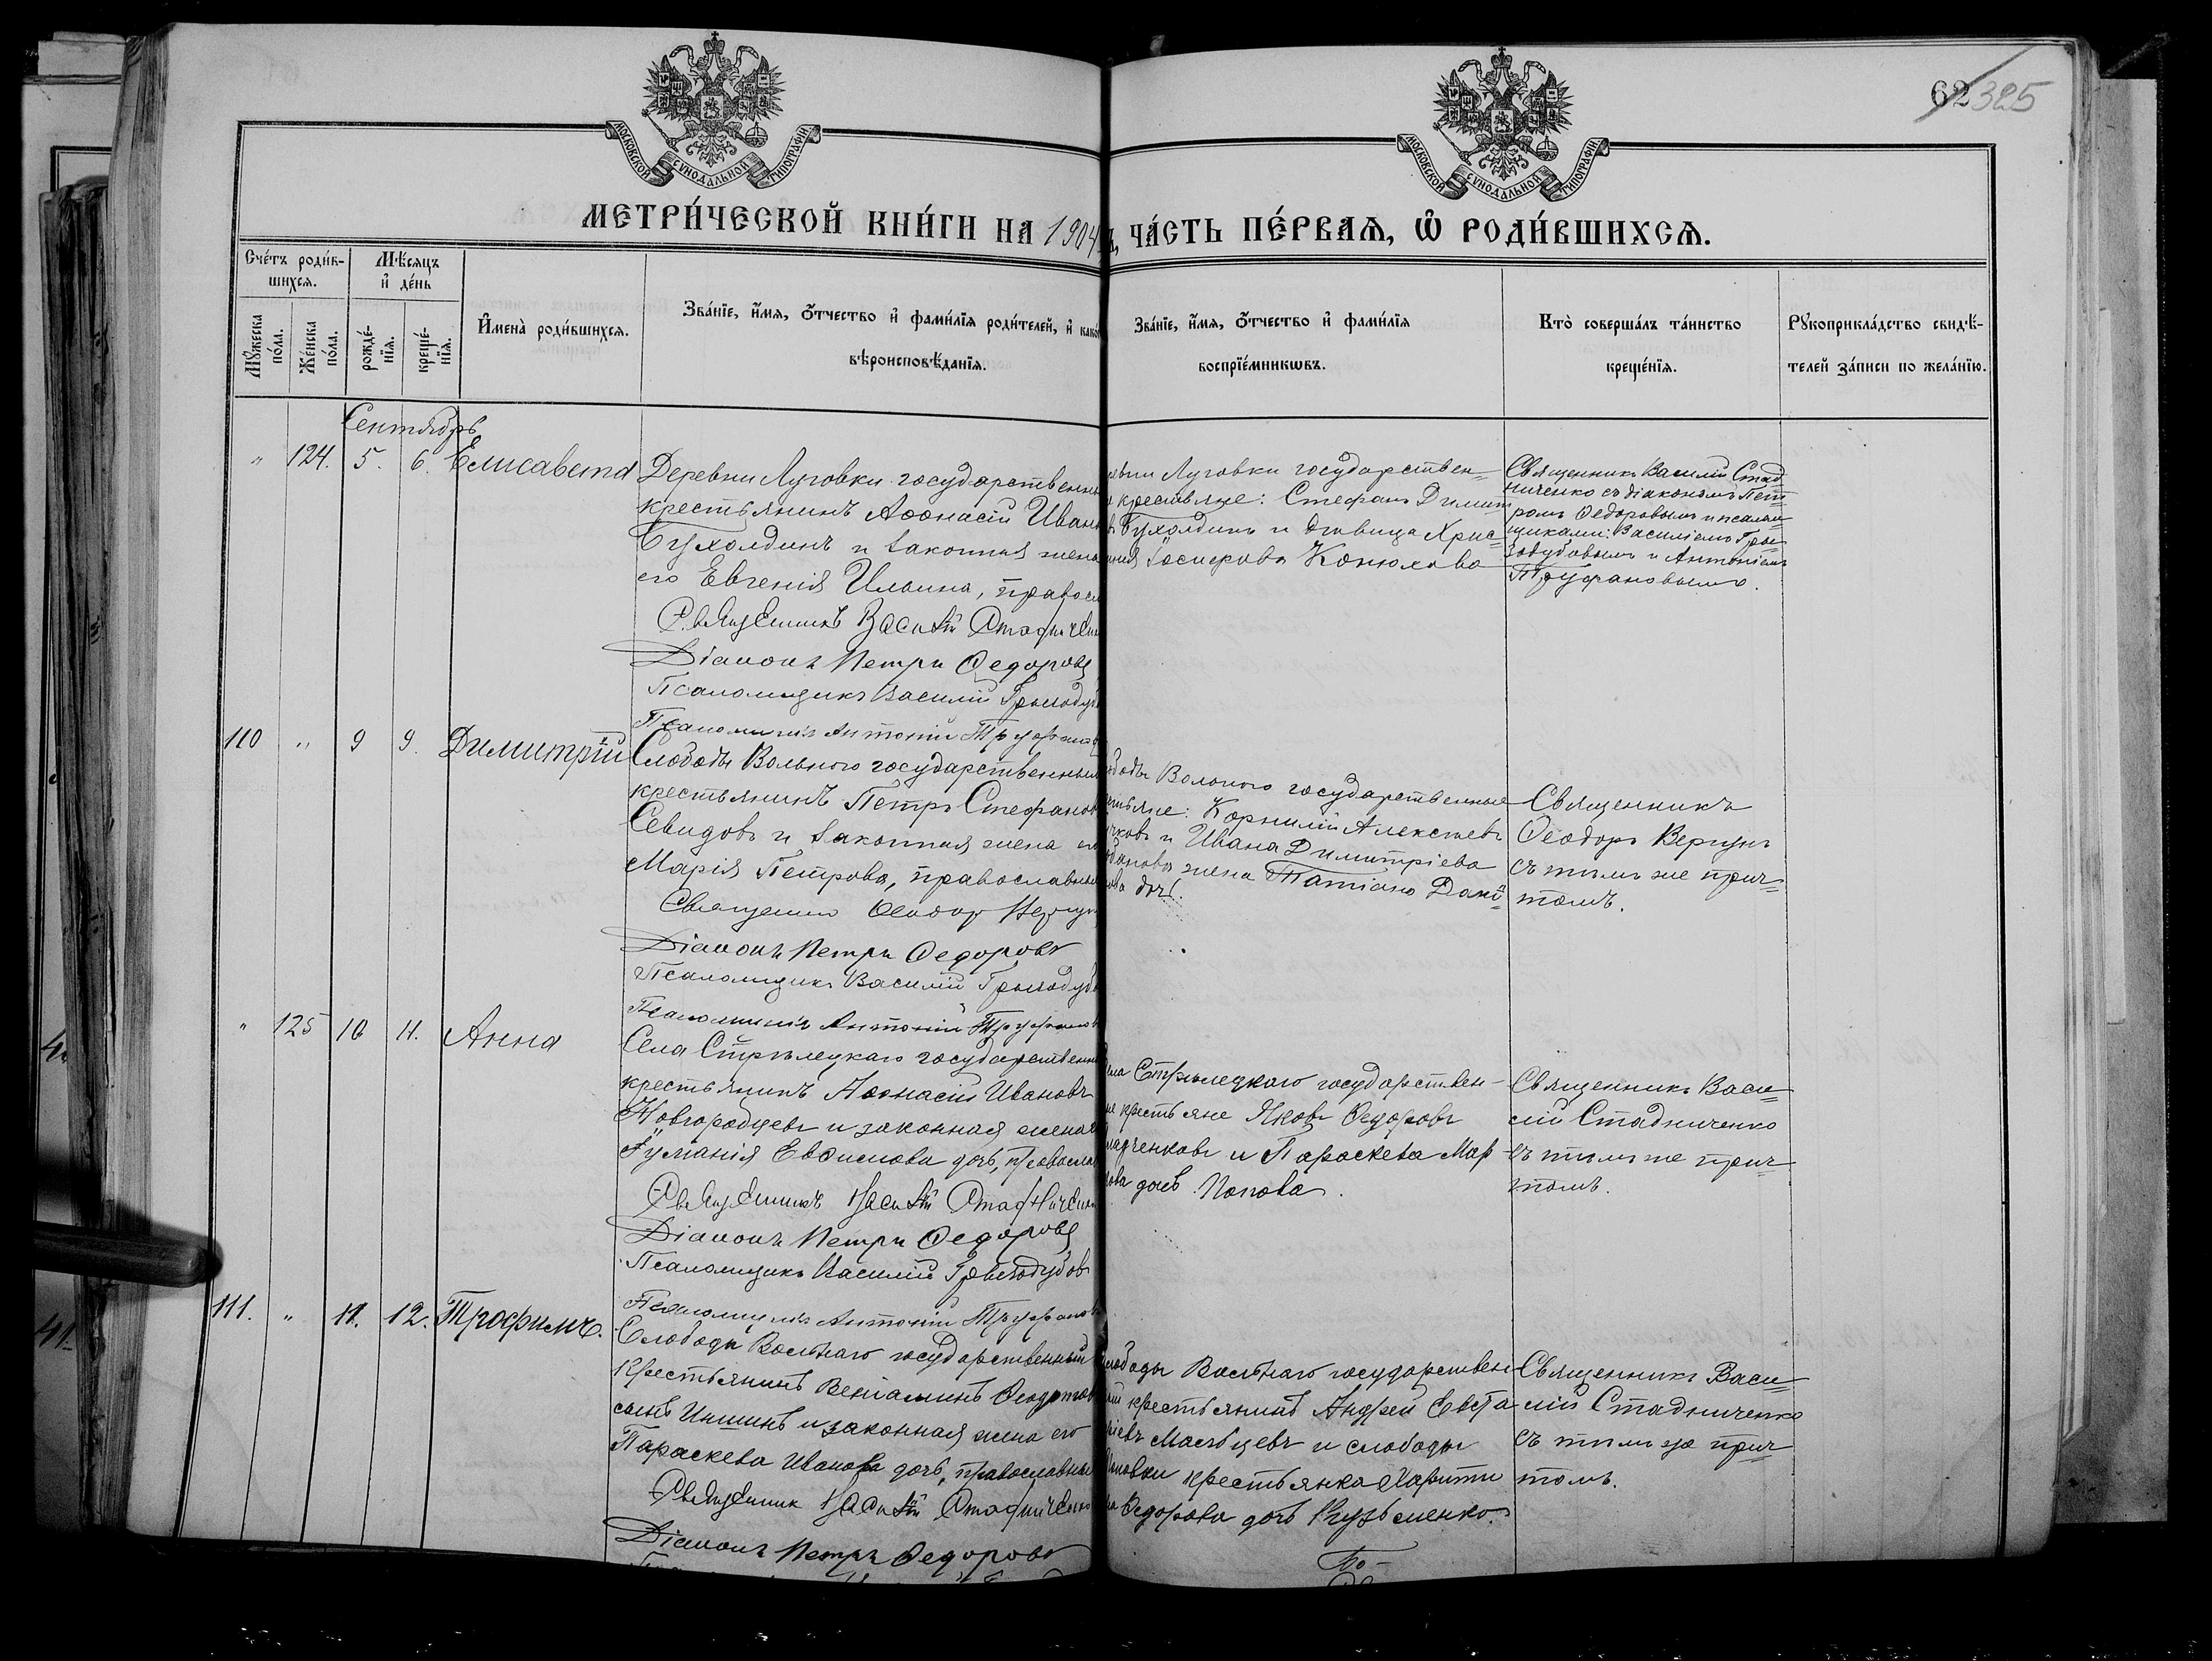 МОСКОВСКОЙ СѴНОДАЛЬНОЙ ТИПОГРАФІИ
МОСКОВСКОЙ СѴНОДАЛЬНОЙ ТИПОГРАФІИ
62 325
МЕТРИ́ЧЕСКОЙ КНИ́ГИ НА 1904 ЧА́СТЬ ПЕ́РВАѦ, Ѽ РОДИ́ВШИХСѦ.
Сче́тъ роди́в-
шихсѧ.
Мꙋ́жеска по́ла.
Же́нска по́ла.
Мѣ́сѧцъ
и҆ де́нь
рожде́-
нїѧ.
креще́-
нїѧ.
И҆мена̀ роди́вшихсѧ.
Зва́нїе, и҆́мѧ, ѻ҆́тчество и҆ фами́лїѧ роди́телей, и҆ како
вѣроисповѣ́данїѧ.
Зва́нїе, и҆́мѧ, ѻ҆́тчество и҆ фами́лїѧ
воспрїе́мникѡвъ.
Кто̀ соверша́лъ та́инство
креще́нїѧ.
Рꙋкоприкла́дство свидѣ́-
телей за́писи по жела́нїю.
Сентябрь
" 124. 5. 6. Елисавета
Деревни Луговки государственны
крестьянинъ Аѳонасій Иван
Бухолдинъ и законная жена
его Евгенія Ильина, правосл
Священникъ Василій Стадничен
Діаконъ Петръ Ѳедоровъ
Псаломщикъ Василій Грызодуб
Псаломщикъ Антоній Труфанов
вни Луговки государствен-
крестьяне: Стефанъ Димит
Бухолдинъ и дѣвица Хрис-
Конюхова
Священникъ Василій Стад-
ниченко съ діакономъ Пет-
ромъ Ѳедоровымъ и псалом-
щиками: Василіемъ Гры-
зодубовымъ и Антоніемъ
Труфановымъ.
110 " 9 9. Димитрій
Слободы Вольного государственный
крестьянинъ Петръ Стефанов
Севидовъ и законная жена его
Марія Петрова, православные
Священникъ Ѳеодоръ Вергун
Діаконъ Петръ Ѳедоровъ
Псаломщикъ Василій Грызодубо
Псаломщикъ Антоній Труфанов
ободы Вольного государственные
стьяне: Корнилій Алексѣевъ
чковъ и Ивана Димитріева
банова жена Татіана Дани-
ова дочь.
Священникъ
Ѳеодоръ Вергунъ
съ тѣмъ же прич-
томъ.
" 125 10 11. Анна
Села Стрѣлецкаго государственн
крестьянинъ Аѳонасій Ивановъ
Новгородцевъ и законная жена
Евѳимова дочь, православ
Священникъ Василій Стадничен
Діаконъ Петръ Ѳедоровъ
Псаломщикъ Василій Грызодубов
Псаломщикъ Антоній Труфанов
ела Стрѣлецкаго государствен-
ые крестьяне Яковъ Ѳедоровъ
ладченковъ и Параскева Мар
ова дочь Попова.
Священникъ Васи-
лій Стадниченко
съ тѣмъ же прич-
томъ.
111. " 11. 12. Трофимъ.
Слободы Вольнаго государственный
крестьянинъ Веніаминъ Ѳеодотов
сынъ Иншинъ и законная жена его
Параскева Иванова дочь, православные
Священникъ Василій Стадниченко
Діаконъ Петръ Ѳедоровъ
лободы Вольнаго государствен
ый крестьянинъ Андрей Евста
ѳіевъ Мальцевъ и слободы
крестьянка Харити
на Ѳедорова дочь Кузьменко.
Священникъ Васи-
лій Стадниченко
съ тѣмъ же прич-
томъ.